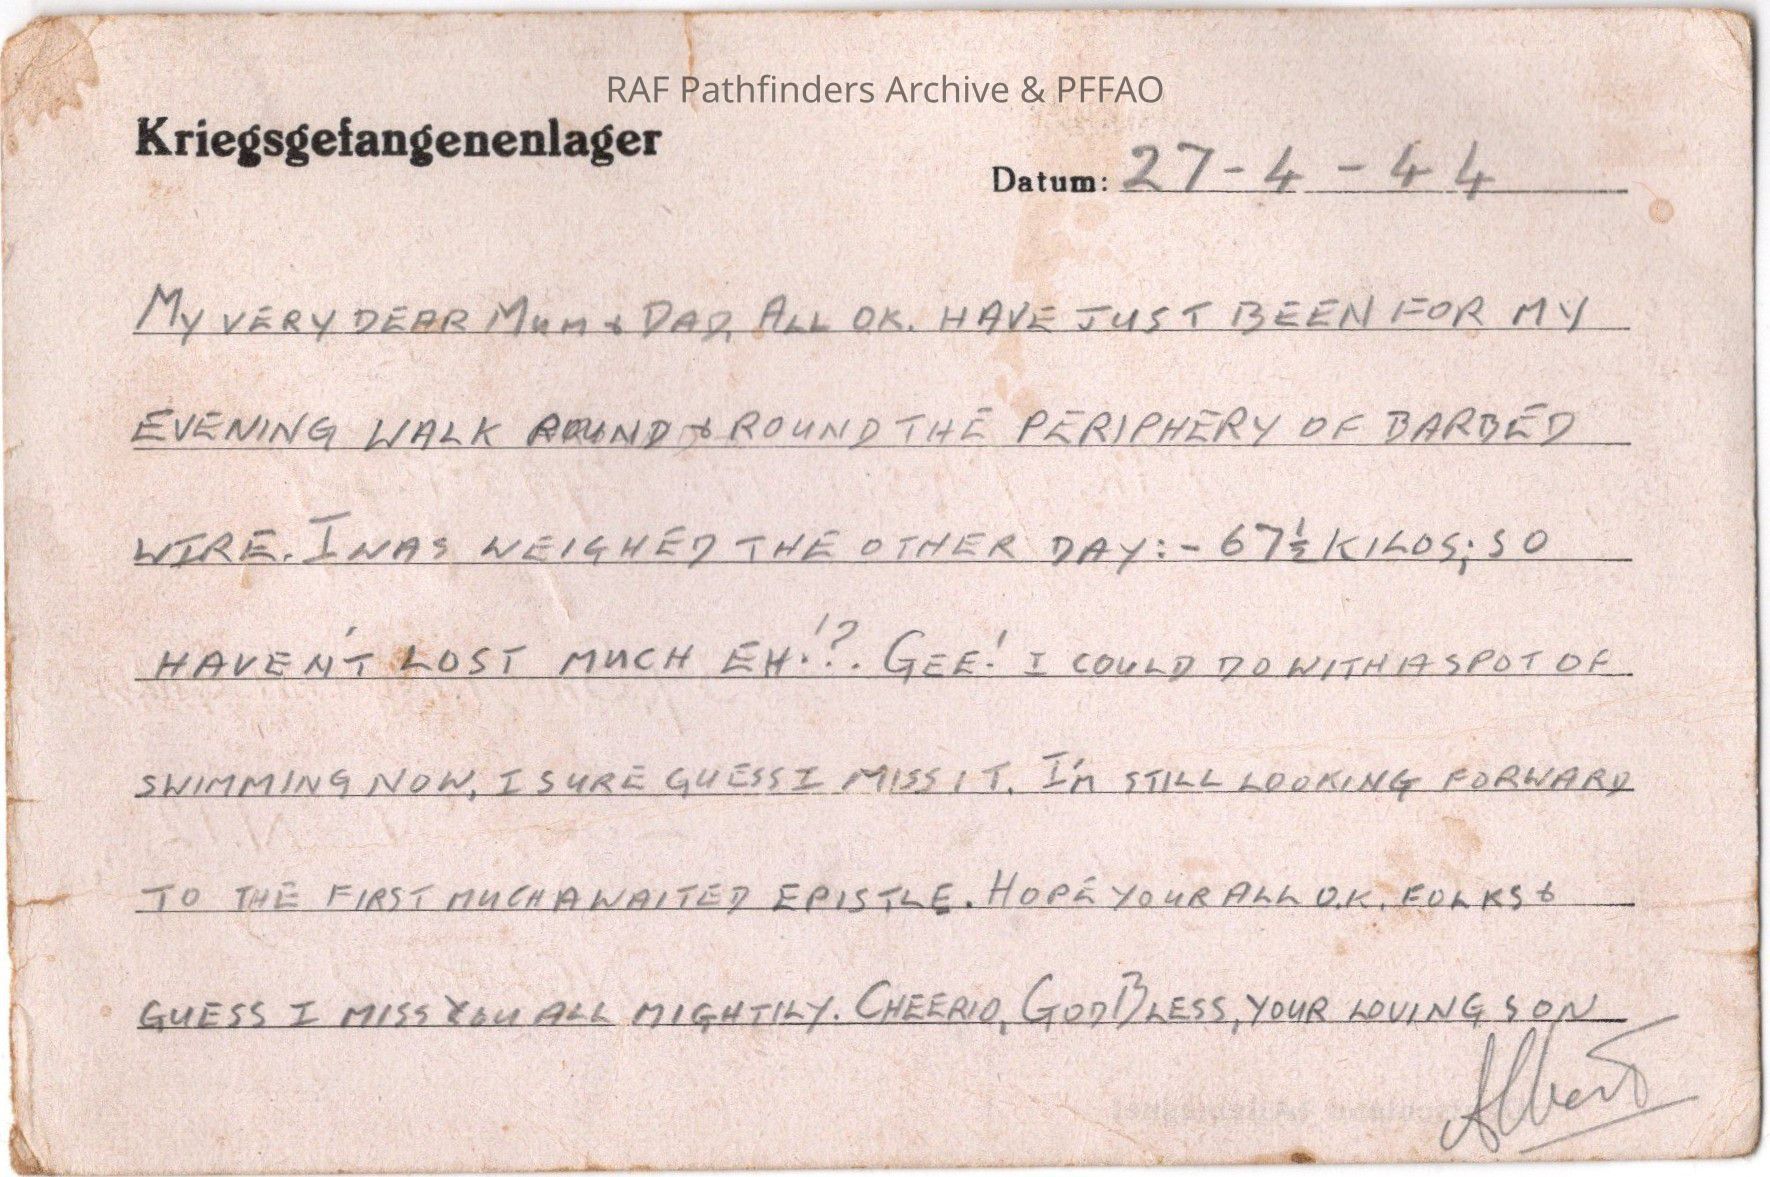 RAF Pathfinders Archive & PFFAO
Kriegsgefangenenlager
Datum: 27-4-44
MY VERY DEAR MUM & DAD, ALL OK. HAVE JUST BEEN FOR MY
EVENING WALK ROUND & ROUND THE PERIPHERY OF BARBED
WIRE. I WAS WEIGHED THE OTHER DAY:- 67½ KILOS; SO
HAVEN'T LOST MUCH EH!?. GEE! I COULD DO WITH A SPOT OF
SWIMMING NOW, I SURE GUESS I MISS IT. I'M STILL LOOKING FORWARD
TO THE FIRST MUCH AWAITED EPISTLE. HOPE YOUR ALL O.K. FOLKS &
GUESS I MISS YOU ALL MIGHTILY. CHEERIO, GOD BLESS, YOUR LOVING SON
Albert